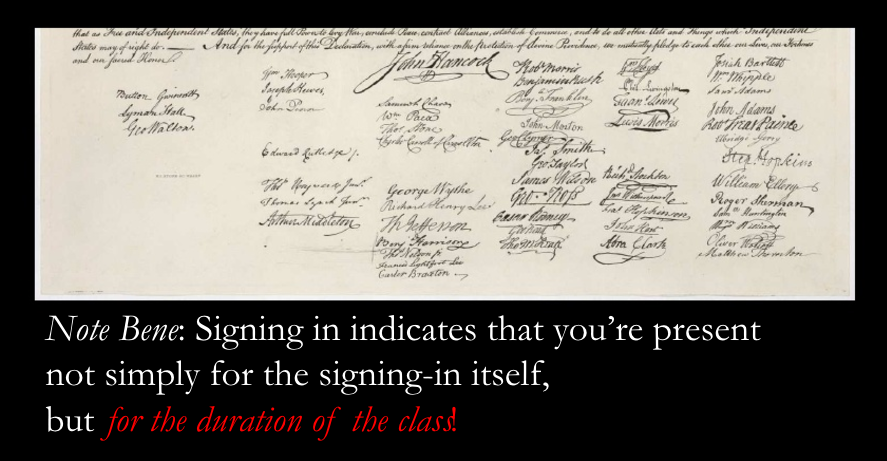 that as Free and Independent States, they have full Power to levy War, conclude Peace, contract Alliances, establish Commerce, and to do all other Acts and Things which Independent
States may of right do. — And for the support of this Declaration, with a firm reliance on the protection of divine Providence, we mutually pledge to each other our Lives, our Fortunes
and our sacred Honor.
Button Gwinnett
Lyman Hall
Geo Walton.
Wm Hooper
Joseph Hewes,
John Penn
Edward Rutledge /.
Thos Heyward Junr.
Thomas Lynch Junr.
Arthur Middleton
John Hancock
Samuel Chase
Wm Paca
Thos Stone
Charles Carroll of Carrollton
George Wythe
Richard Henry Lee
Th Jefferson
Benj Harrison
Thos Nelson jr.
Francis Lightfoot Lee
Carter Braxton
Robt Morris
Benjamin Rush
Benj. Franklin
John Morton
Geo Clymer
Jas. Smith
Geo. Taylor
James Wilson
Geo. Ross
Caesar Rodney
Geo Read
Tho M:Kean
Wm Floyd
Phil. Livingston
Frans. Lewis
Lewis Morris
Richd. Stockton
Jno Witherspoon
Fras. Hopkinson
John Hart
Abra Clark
Josiah Bartlett
Wm Whipple
Saml Adams
John Adams
Robt Treat Paine
Elbridge Gerry
Step. Hopkins
William Ellery
Roger Sherman
Sam Huntington
Wm Williams
Oliver Wolcott
Matthew Thornton
Note Bene: Signing in indicates that you’re present
not simply for the signing-in itself,
but for the duration of the class!